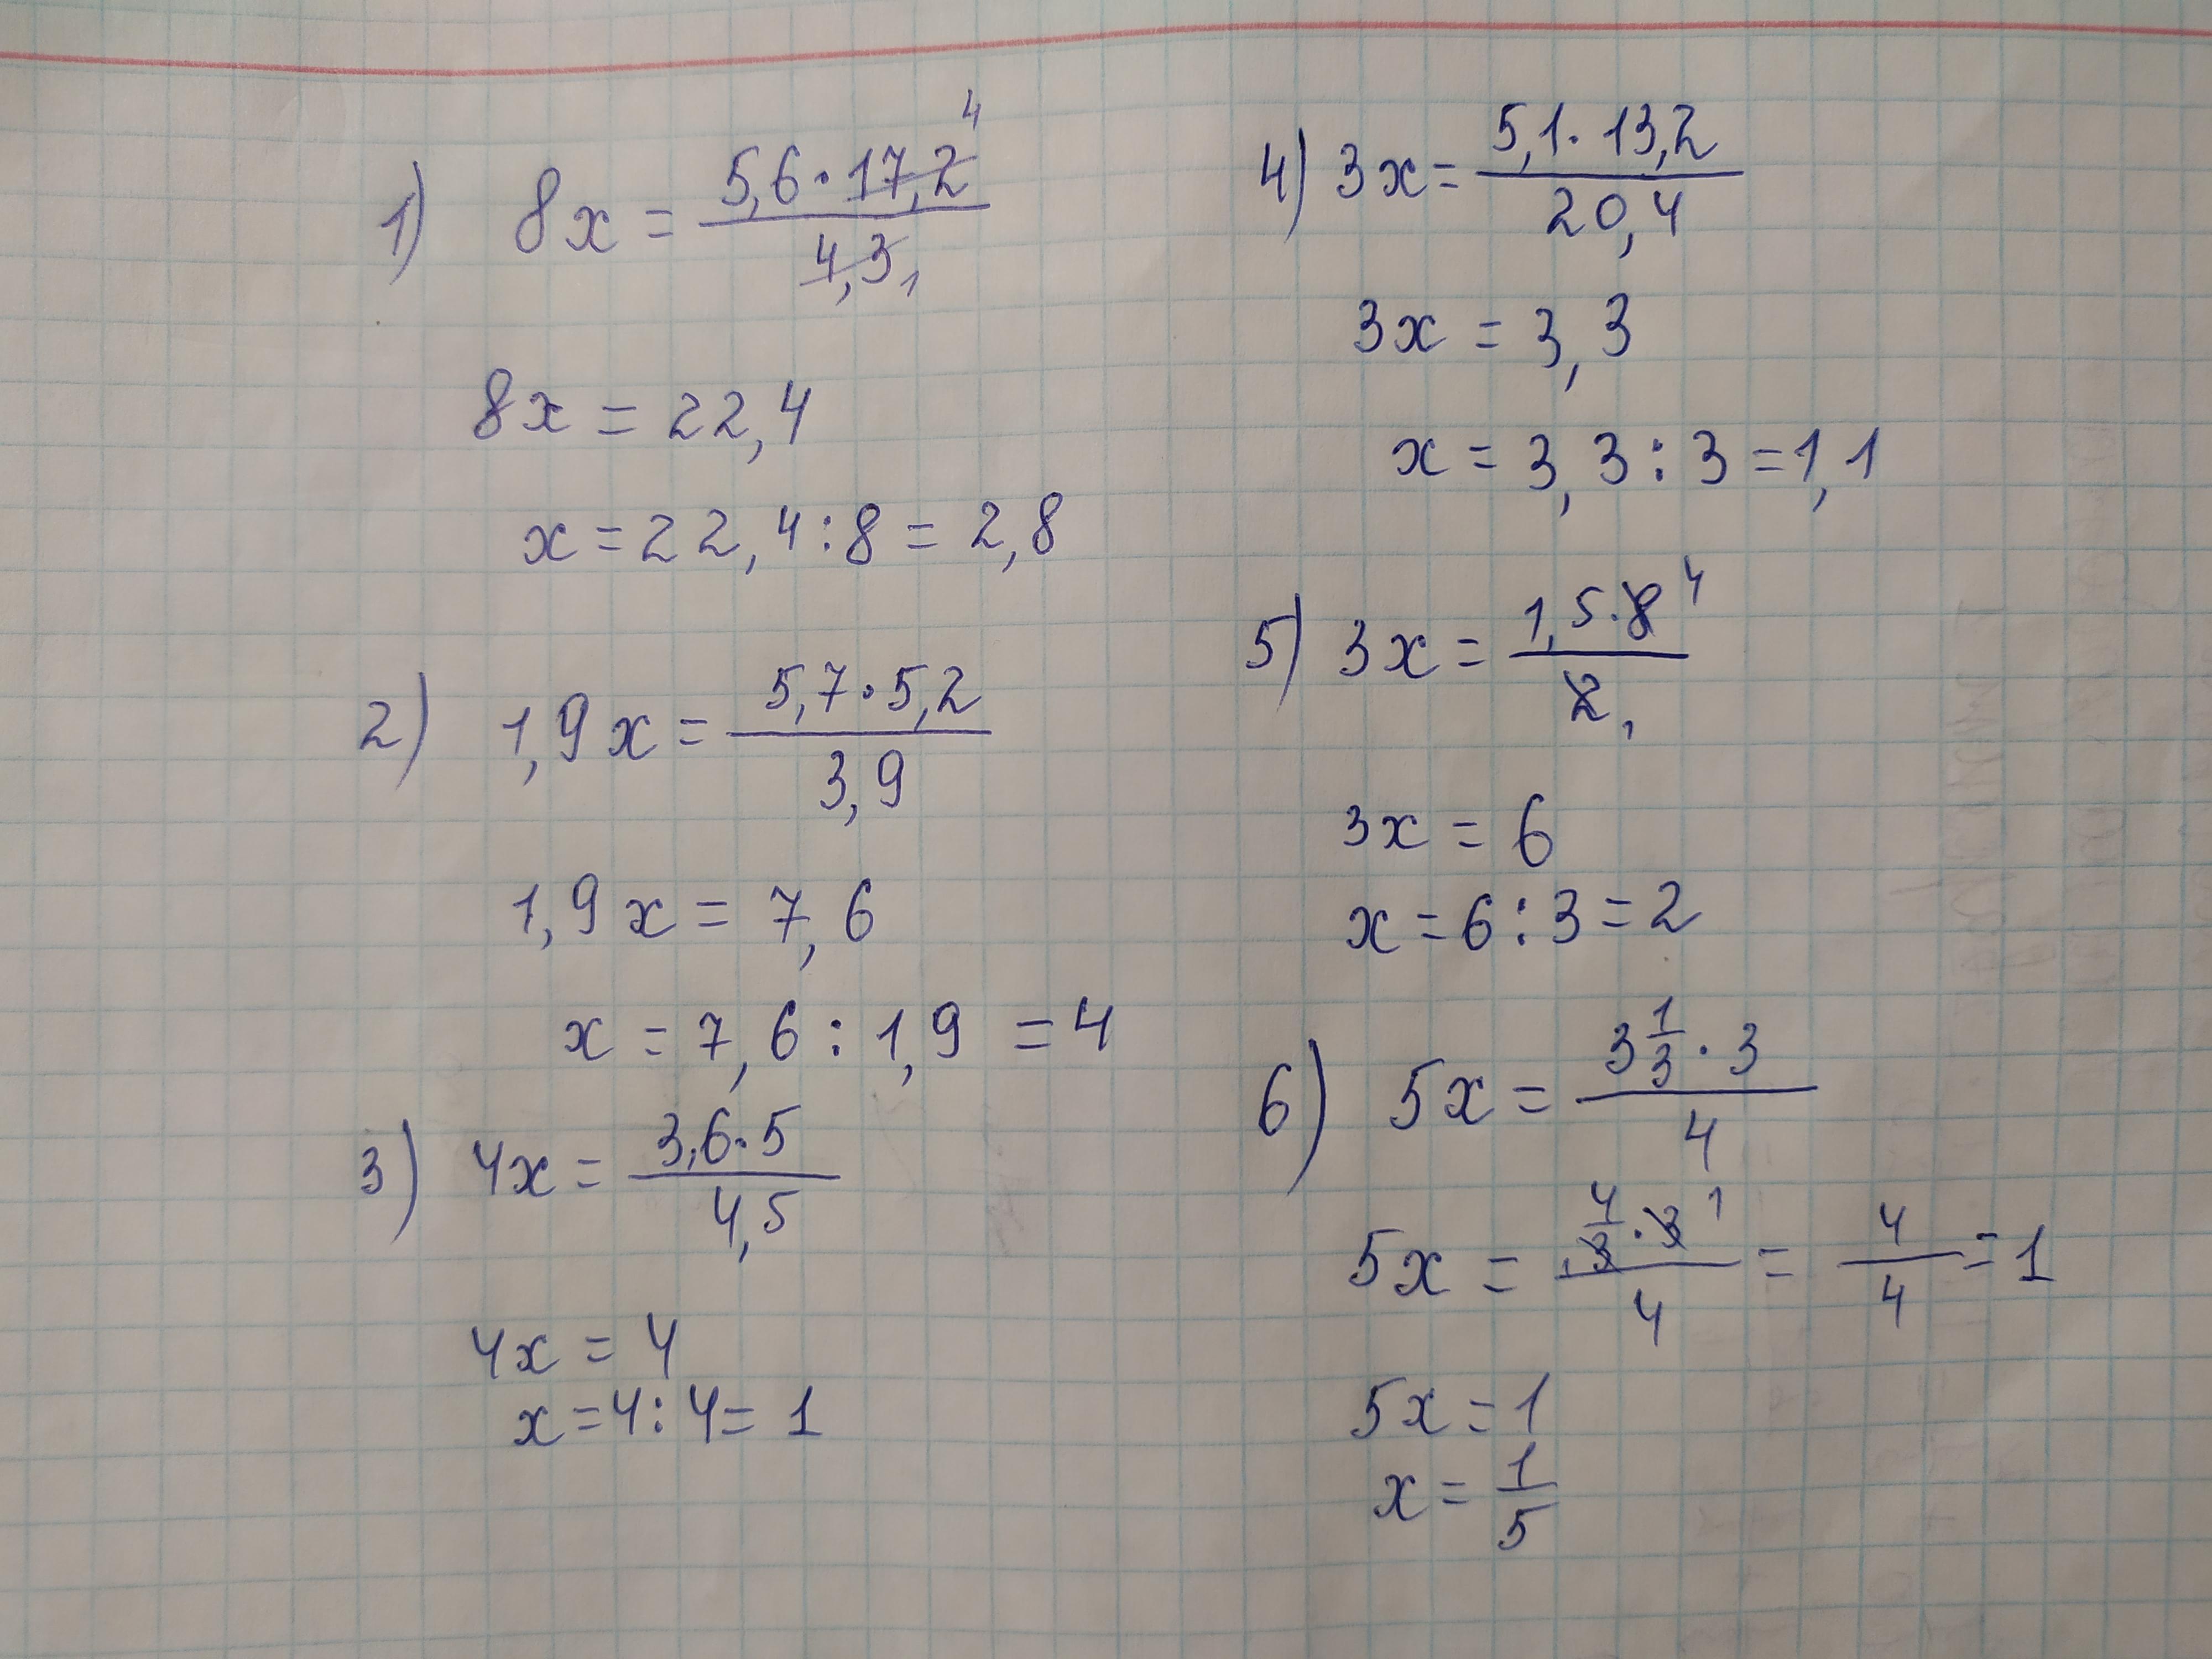 1) 8x = (5,6 · 17,2 ⁴) / (4,3 ₁)
8x = 22,4
x = 22,4 : 8 = 2,8
2) 1,9x = (5,7 · 5,2) / (3,9)
1,9x = 7,6
x = 7,6 : 1,9 = 4
3) 4x = (3,6 · 5) / (4,5)
4x = 4
x = 4 : 4 = 1
4) 3x = (5,1 · 13,2) / (20,4)
3x = 3,3
x = 3,3 : 3 = 1,1
5) 3x = (1,5 · 8 ⁴) / (2 ₁)
3x = 6
x = 6 : 3 = 2
6) 5x = (3 1/3 · 3) / 4
5x = (4/₁3 · 3 ¹) / 4 = 4/4 = 1
5x = 1
x = 1/5